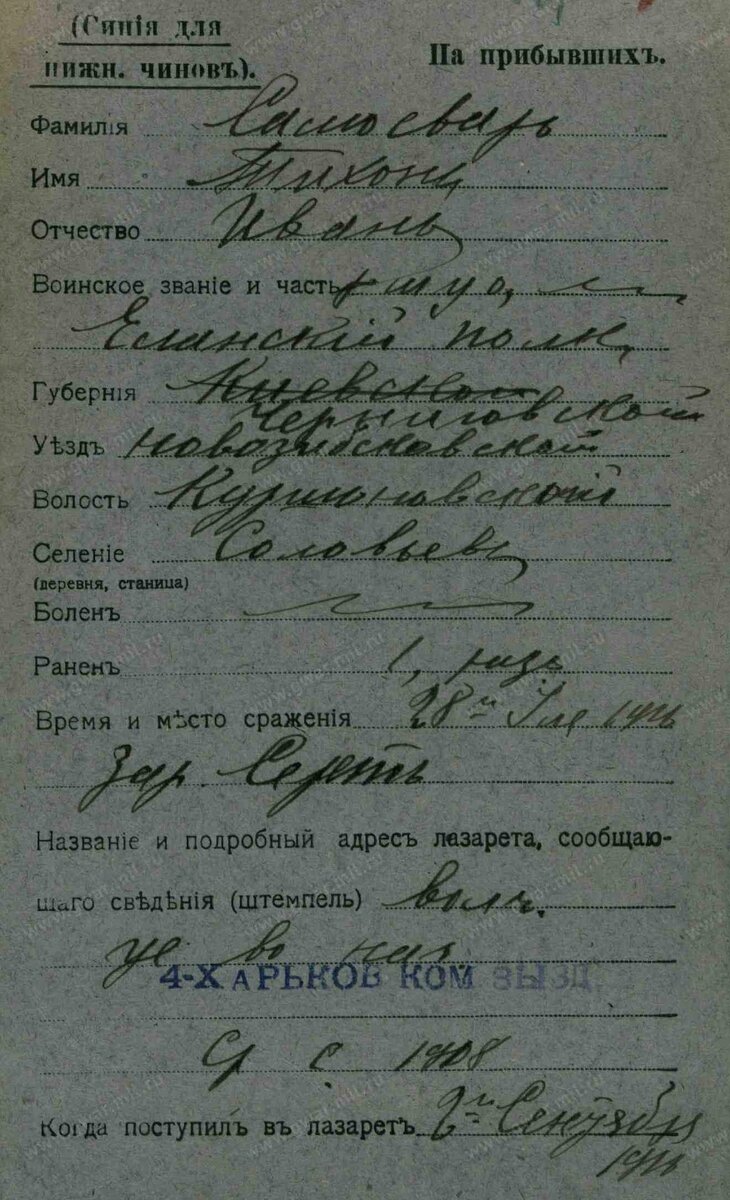 (Синія для
нижн. чиновъ).
На прибывшихъ.
Фамилія Самосваръ
Имя Тихонъ
Отчество Иванъ
Воинское званіе и часть
Еланскій полк.
Губернія Кіевской
Черниговской
Уѣздъ новозибковской
Волость
Селеніе Соловьевъ
(деревня, станица)
Боленъ
Раненъ 1, разъ
Время и мѣсто сраженія 28го Іля 1916
Серетъ
Названіе и подробный адресъ лазарета, сообщаю-
щаго свѣдѣнія (штемпель)
4-ХАРЬКОВ КОМ
Ср с 1908
Когда поступилъ въ лазаретъ 2го Сентября
1916